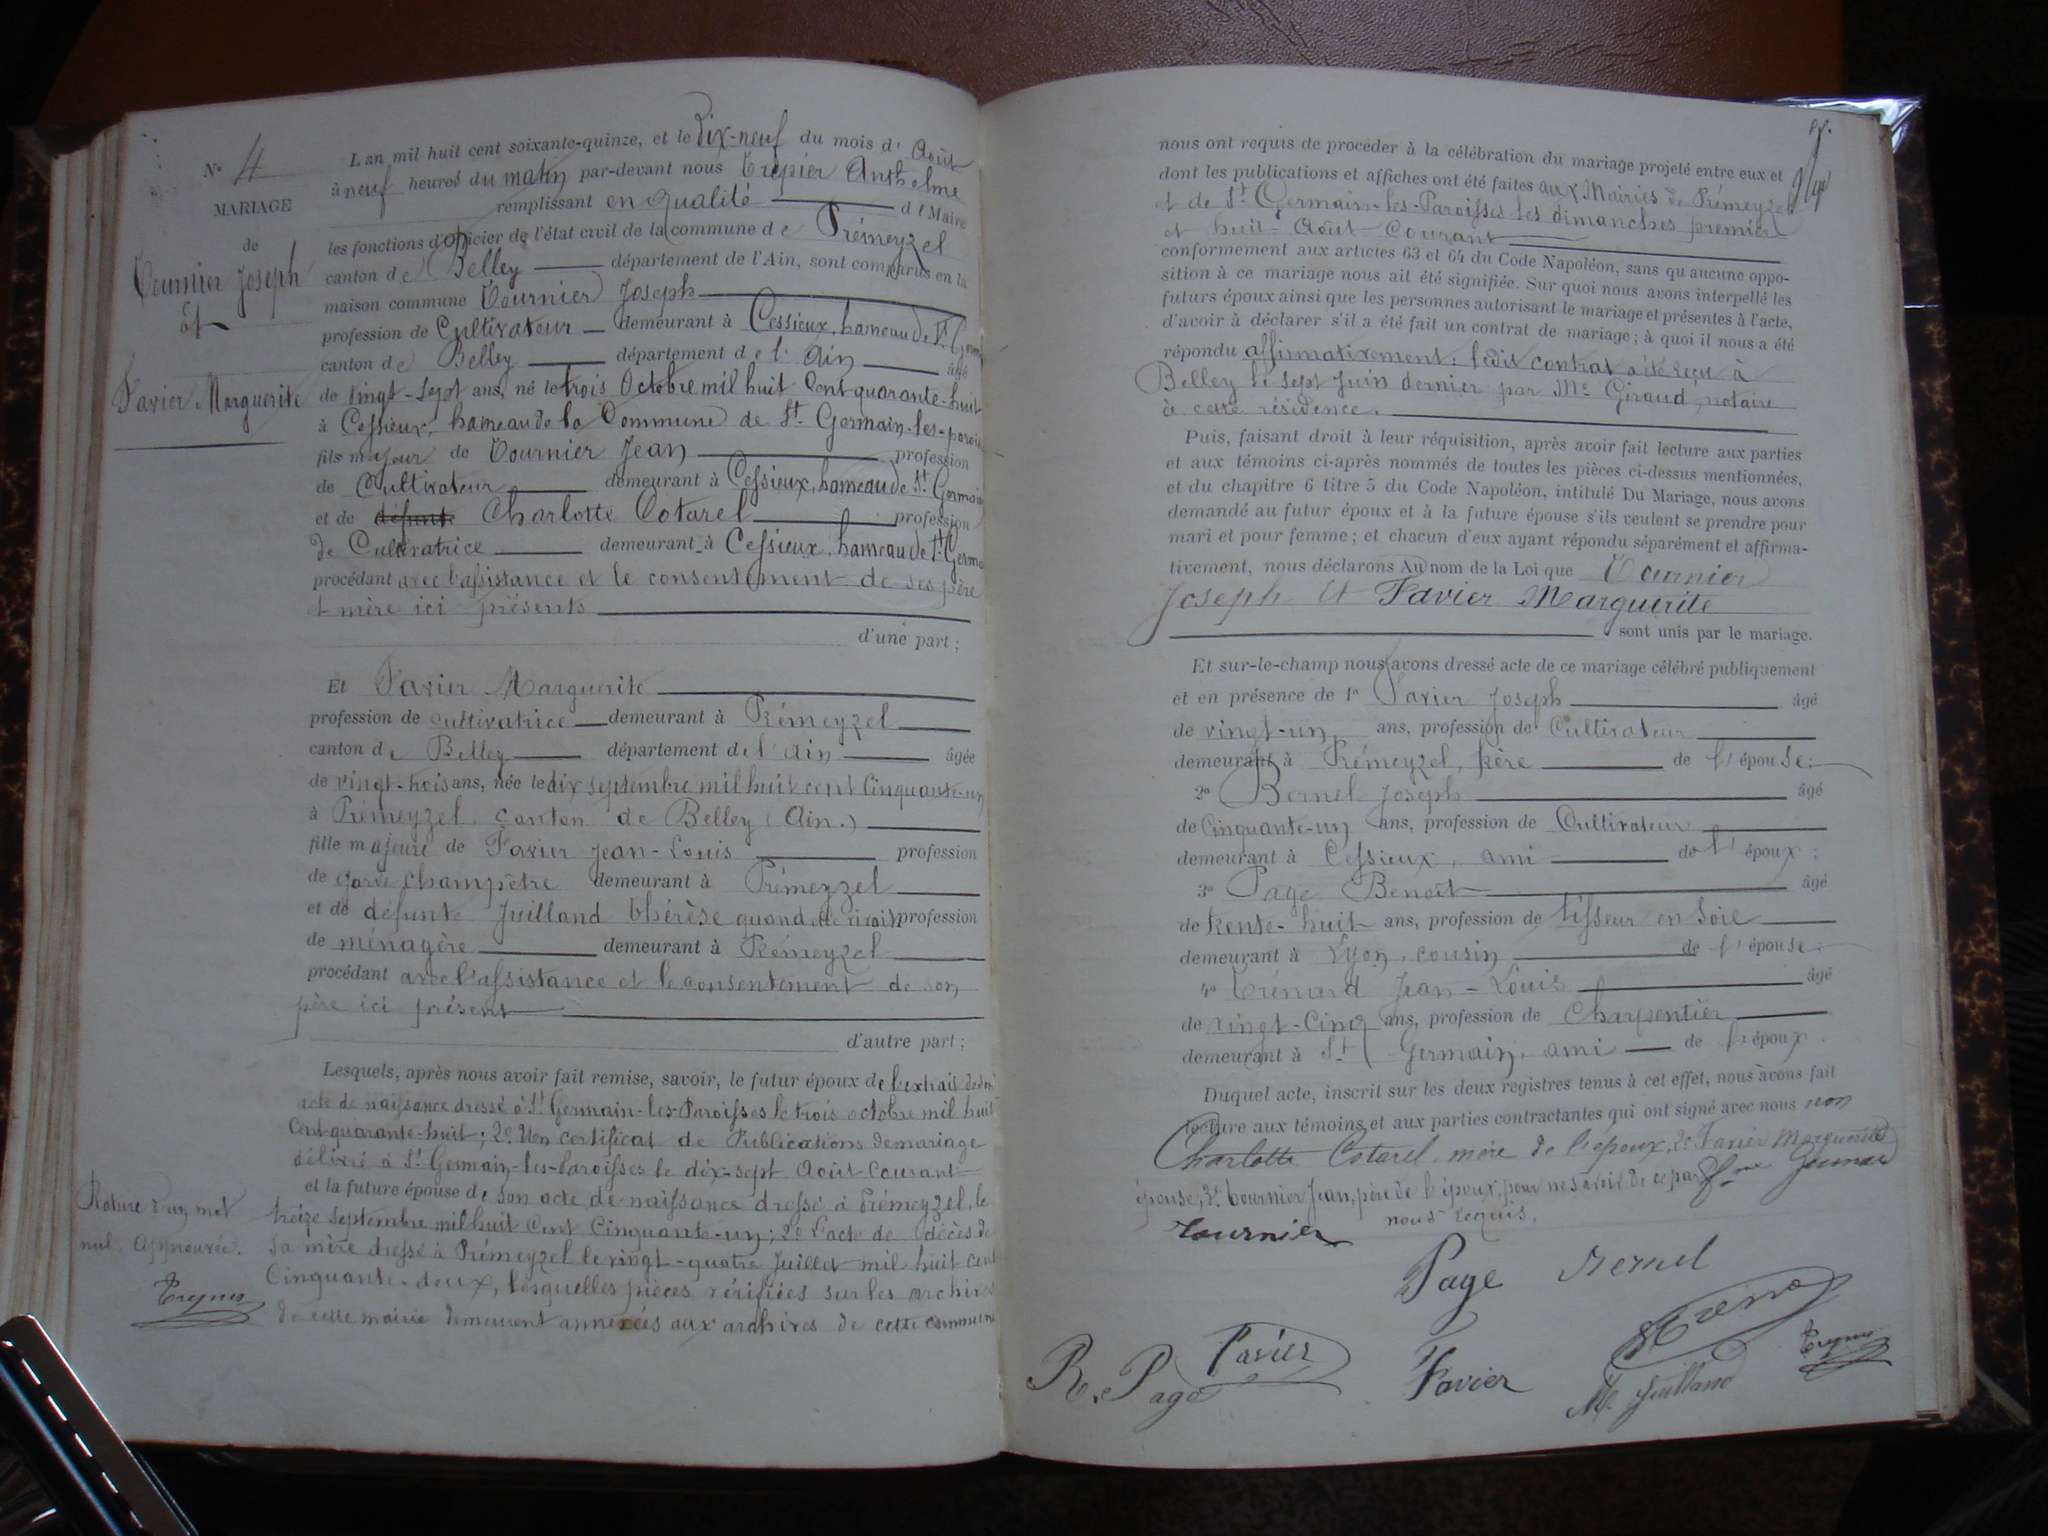 N° 4
MARIAGE
de
Tournier Joseph
et
Favier Marguerite
L'an mil huit cent soixante-quinze, et le Dix-neuf du mois d' Août
à neuf heures du matin par-devant nous Trepier Anthelme
remplissant en qualité d e Maire
les fonctions d'officier de l'état civil de la commune de Prémeyzel
canton de Belley département de l'Ain, sont comparus en la
maison commune Tournier Joseph
profession de Cultivateur demeurant à Cessieux, hameau de St Germ
canton de Belley département de l'Ain âgé
de vingt-sept ans, né le trois Octobre mil huit Cent quarante-huit
à Cessieux, hameau de la Commune de St Germain-les-parois
fils majeur de Tournier Jean profession
de Cultivateur demeurant à Cessieux, hameau de St Germain
et de défunte Charlotte Cotarel profession
de Cultivatrice demeurant à Cessieux, hameau de St Germa
procédant avec l'assistance et le consentement de ses père
et mère ici présents
d'une part ;
Et Favier Marguerite
profession de cultivatrice demeurant à Prémeyzel
canton de Belley département de l'ain âgée
de vingt-trois ans, née le dix septembre mil huit cent Cinquante-un
à Prémeyzel, canton de Belley (Ain.)
fille majeure de Favier Jean-Louis profession
de garde champêtre demeurant à Prémeyzel
et de défunte Juilland Thérèse quand elle vivait profession
de ménagère demeurant à Prémeyzel
procédant avec l'assistance et le consentement de son
père ici présent
d'autre part ;
Lesquels, après nous avoir fait remise, savoir, le futur époux de l'extrait de son
acte de naissance dressé à St Germain-les-Paroisses le trois octobre mil huit
Cent quarante-huit ; 2° Un certificat de Publications de mariage
délivré à St Germain-les-Paroisses le dix-sept Août Courant
et la future épouse de son acte de naissance dressé à Prémeyzel, le
treize septembre mil huit Cent Cinquante-un ; 2° l'acte de décès de
sa mère dressé à Prémeyzel le vingt-quatre Juillet mil huit cent
Cinquante-deux, lesquelles pièces vérifiées sur les archives
de cette mairie demeurent annexées aux archives de cette commune
Rature d'un mot
nul approuvée.
nous ont requis de procéder à la célébration du mariage projeté entre eux et
dont les publications et affiches ont été faites aux Mairies de Prémeyzel
et de St Germain-les-Paroisses les dimanches premier
et huit Août Courant
conformément aux articles 63 et 64 du Code Napoléon, sans qu'aucune oppo-
sition à ce mariage nous ait été signifiée. Sur quoi nous avons interpellé les
futurs époux ainsi que les personnes autorisant le mariage et présentes à l'acte,
d'avoir à déclarer s'il a été fait un contrat de mariage ; à quoi il nous a été
répondu affirmativement : ledit contrat a été reçu à
Belley le sept Juin dernier par Me Giraud, notaire
à cette résidence.
Puis, faisant droit à leur réquisition, après avoir fait lecture aux parties
et aux témoins ci-après nommés de toutes les pièces ci-dessus mentionnées,
et du chapitre 6 titre 5 du Code Napoléon, intitulé Du Mariage, nous avons
demandé au futur époux et à la future épouse s'ils veulent se prendre pour
mari et pour femme ; et chacun d'eux ayant répondu séparément et affirma-
tivement, nous déclarons Au nom de la Loi que Tournier
Joseph et Favier Marguerite
sont unis par le mariage.
Et sur-le-champ nous avons dressé acte de ce mariage célébré publiquement
et en présence de 1° Favier Joseph âgé
de vingt-un ans, profession de Cultivateur
demeurant à Prémeyzel, frère de l'épouse ;
2° Bernel Joseph âgé
de Cinquante-un ans, profession de Cultivateur
demeurant à Cessieux, ami de l'époux ;
3° Page Benoît âgé
de trente-huit ans, profession de tisseur en soie
demeurant à Lyon, cousin de l'épouse ;
4° Trénard Jean-Louis âgé
de vingt-Cinq ans, profession de Charpentier
demeurant à St Germain, ami de l'époux.
Duquel acte, inscrit sur les deux registres tenus à cet effet, nous avons fait
lecture aux témoins et aux parties contractantes qui ont signé avec nous non
Charlotte Cotarel, mère de l'époux, 2° Favier Marguerite
épouse, 3° Tournier Jean, père de l'époux, pour ne savoir de ce par
nous requis.
Tournier
Page Bernel
R. Page Favier Favier
M. Juilland